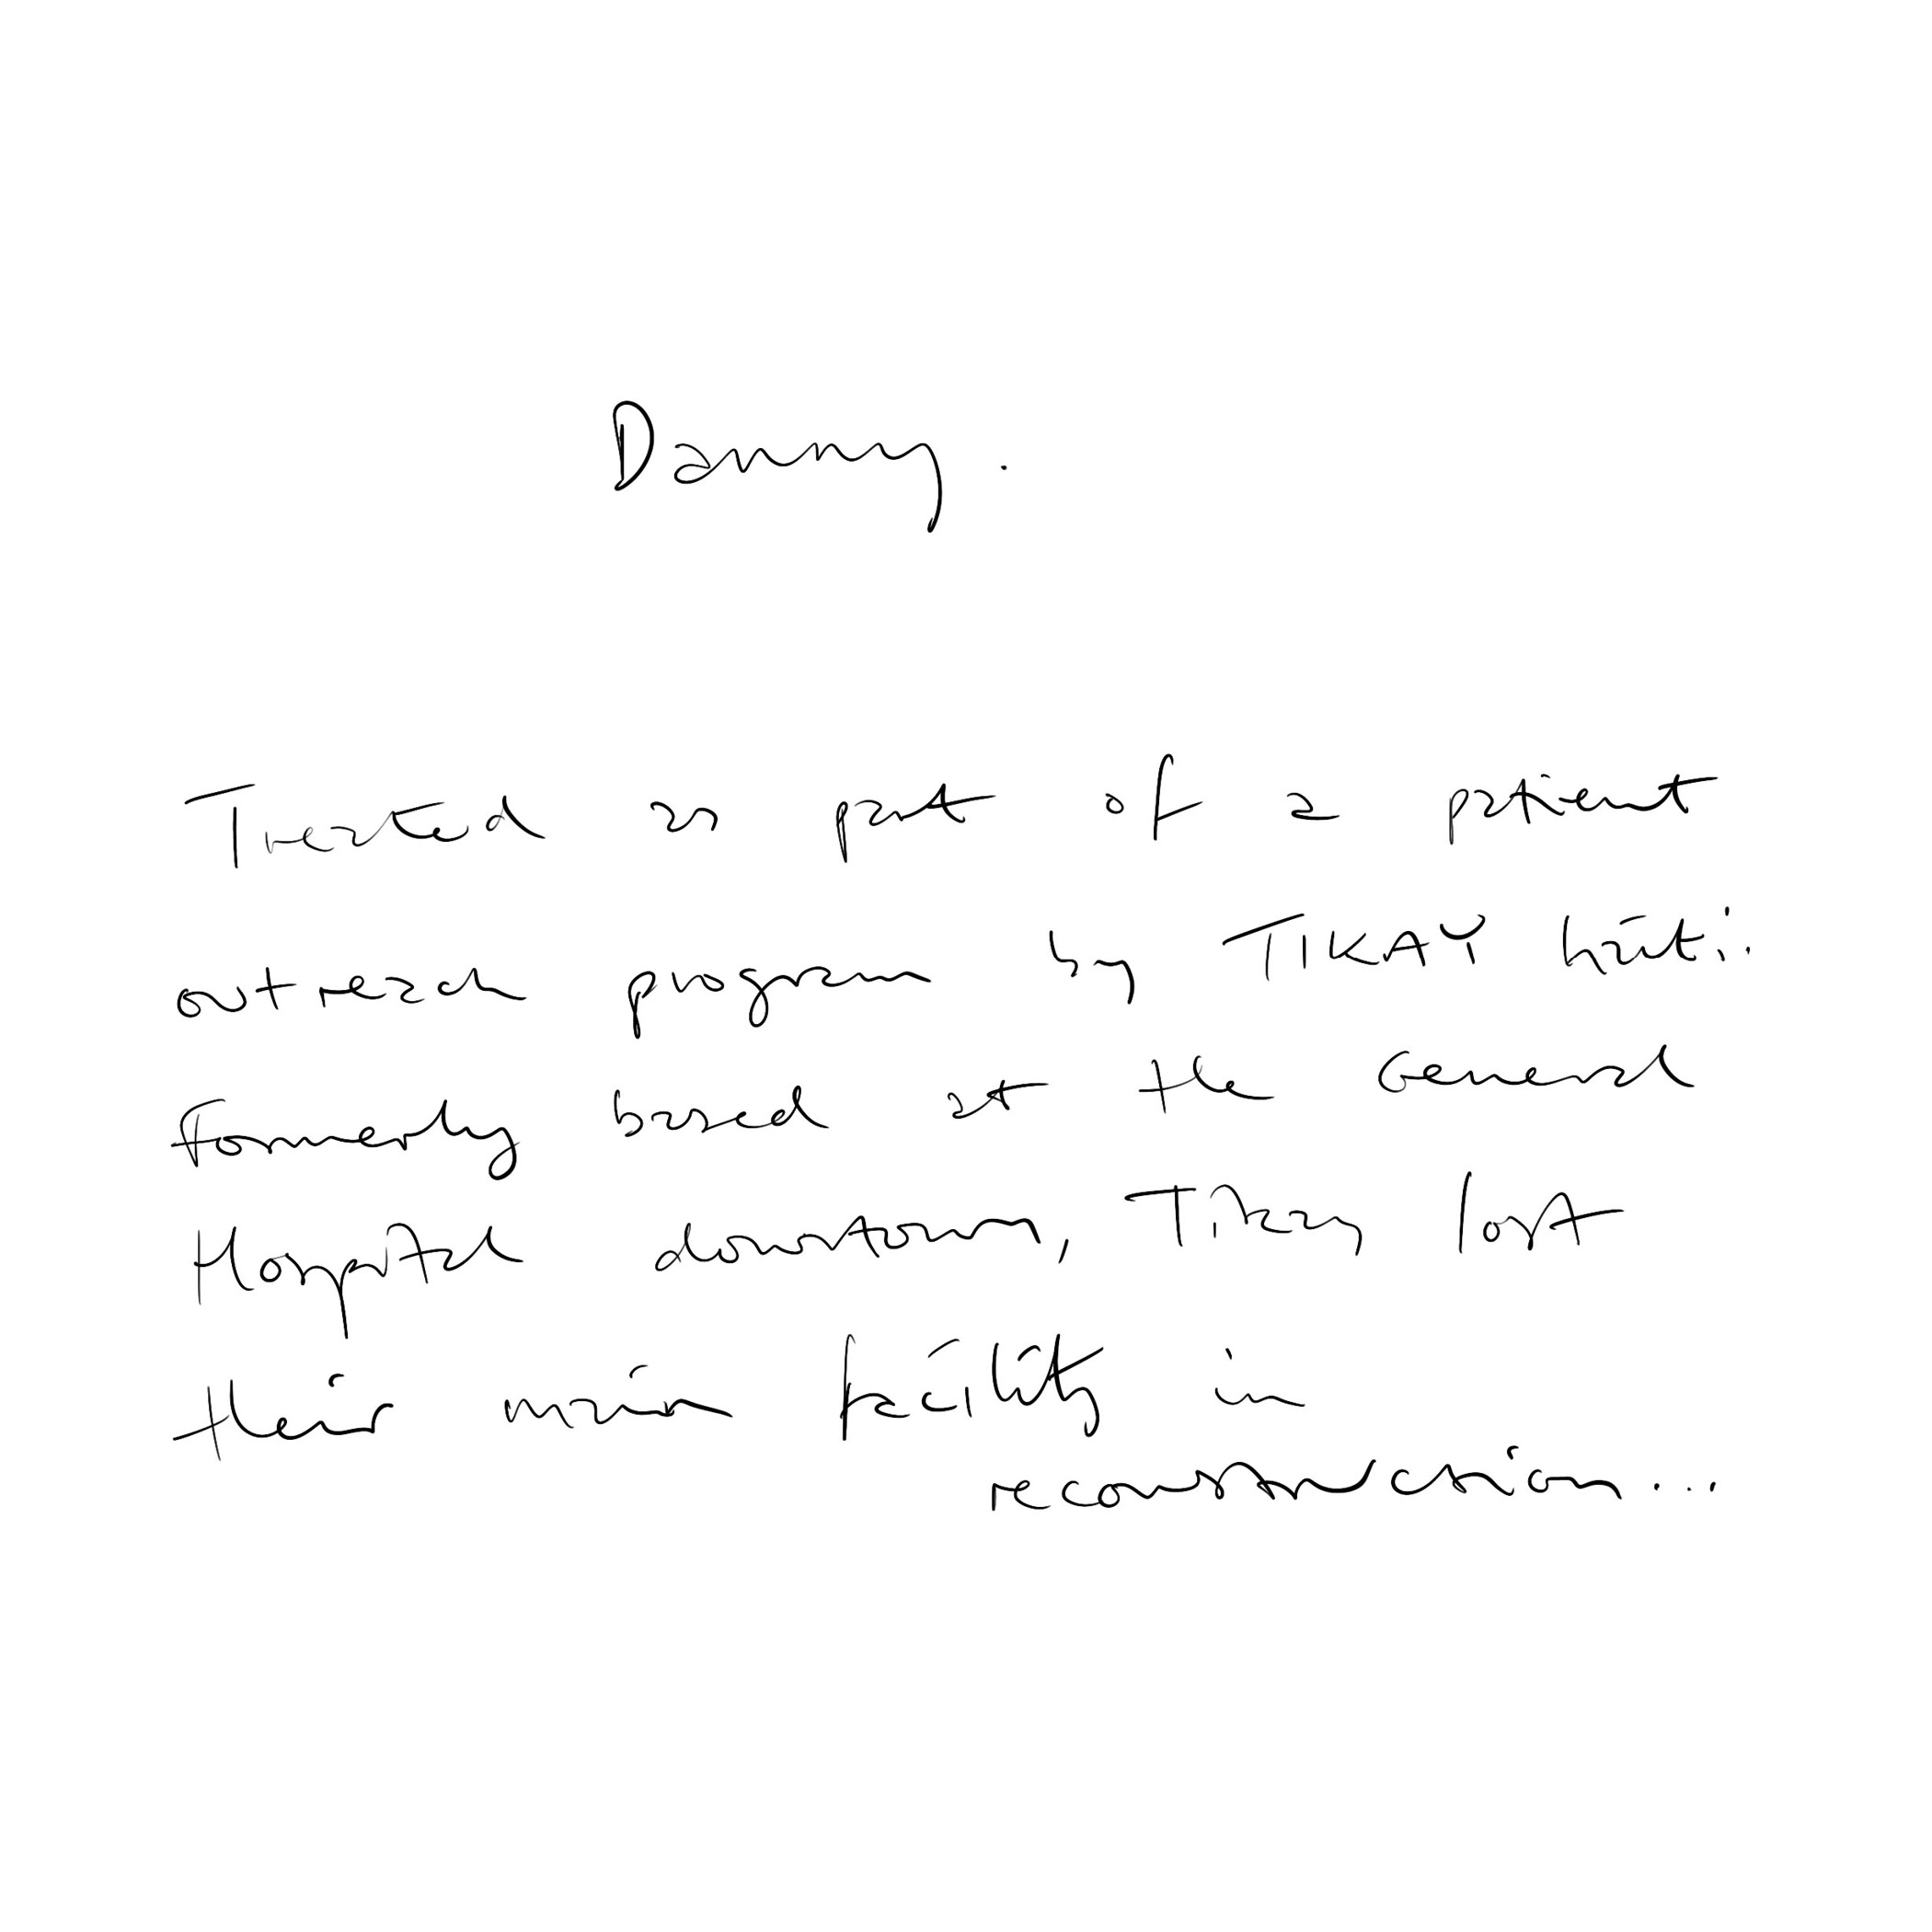 Danny.
Treated as part of a patient
outreach program by TIKAY haiti.
Formerly based at the General
Hospital downtown, Tikay lost
their main facility in
reconstruction...